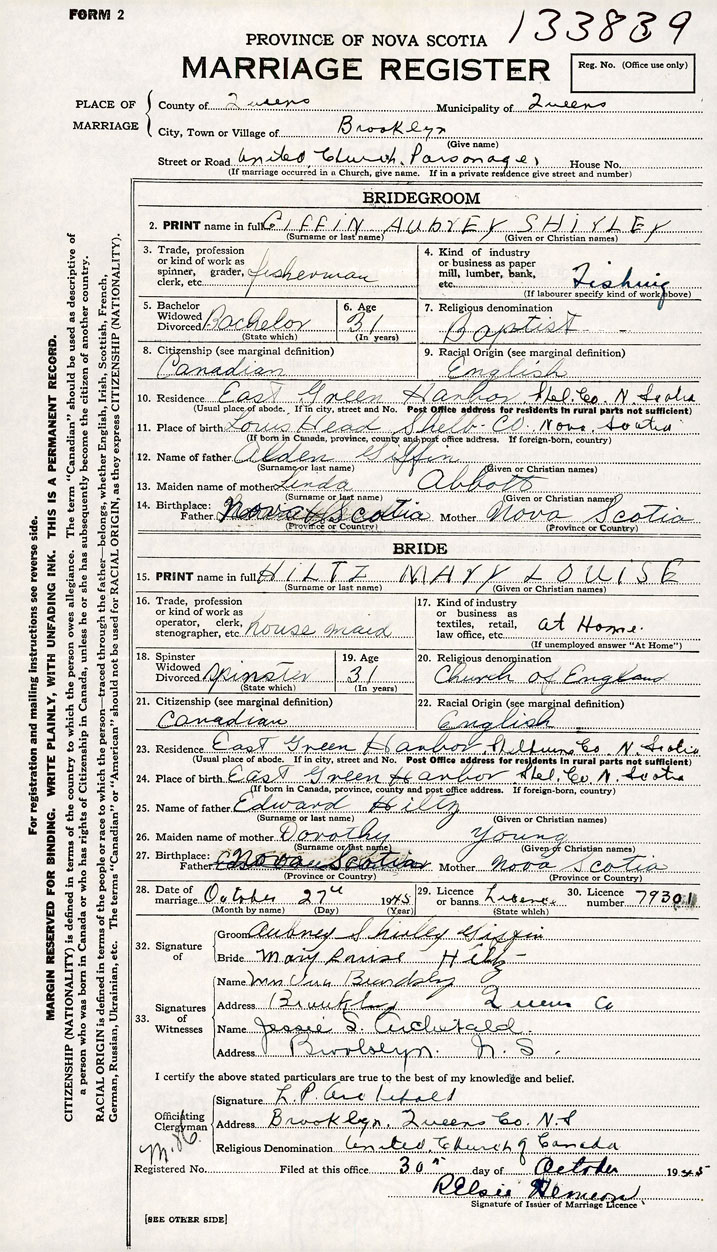 FORM 2
133839
PROVINCE OF NOVA SCOTIA
MARRIAGE REGISTER
Reg. No. (Office use only)
PLACE OF MARRIAGE
County of Queens Municipality of Queens
City, Town or Village of Brooklyn
(Give name)
Street or Road United Church Parsonage, House No.
(If marriage occurred in a Church, give name. If in a private residence give street and number)
BRIDEGROOM
2. PRINT name in full GIFFIN AUBREY SHIRLEY
(Surname or last name) (Given or Christian names)
3. Trade, profession or kind of work as spinner, grader, clerk, etc. fisherman
4. Kind of industry or business as paper mill, lumber, bank, etc. Fishing
(If labourer specify kind of work above)
5. Bachelor Widowed Divorced Bachelor
(State which)
6. Age 31
(In years)
7. Religious denomination
Baptist
8. Citizenship (see marginal definition)
Canadian
9. Racial Origin (see marginal definition)
English
10. Residence East Green Harbor Shel. Co. N. Scotia
(Usual place of abode. If in city, street and No. Post Office address for residents in rural parts not sufficient)
11. Place of birth Louis Head Shelb. Co. Nova Scotia
(If born in Canada, province, county and post office address. If foreign-born, country)
12. Name of father Alden Giffin
(Surname or last name) (Given or Christian names)
13. Maiden name of mother Linda Abbott
(Surname or last name) (Given or Christian names)
14. Birthplace: Father Nova Scotia Mother Nova Scotia
(Province or Country) (Province or Country)
BRIDE
15. PRINT name in full HILTZ MARY LOUISE
(Surname or last name) (Given or Christian names)
16. Trade, profession or kind of work as operator, clerk, stenographer, etc. house maid
17. Kind of industry or business as textiles, retail, law office, etc. at Home.
(If unemployed answer "At Home")
18. Spinster Widowed Divorced Spinster
(State which)
19. Age 31
(In years)
20. Religious denomination
Church of England
21. Citizenship (see marginal definition)
Canadian
22. Racial Origin (see marginal definition)
English
23. Residence East Green Harbor Co. N. Scotia
(Usual place of abode. If in city, street and No. Post Office address for residents in rural parts not sufficient)
24. Place of birth East Green Harbor Shel. Co. N. Scotia
(If born in Canada, province, county and post office address. If foreign-born, country)
25. Name of father Edward Hiltz
(Surname or last name) (Given or Christian names)
26. Maiden name of mother Dorothy Young
(Surname or last name) (Given or Christian names)
27. Birthplace: Father Nova Scotia Mother Nova Scotia
(Province or Country) (Province or Country)
28. Date of marriage October 27th 1945
(Month by name) (Day) (Year)
29. Licence or banns Licence
(State which)
30. Licence number 79301
32. Signature of
Groom Aubrey Shirley Giffin
Bride Mary Louise Hiltz
33. Signatures of Witnesses
Name Mrs
Address Brooklyn Queens Co
Name Jessie S. Archibald.
Address Brooklyn. N. S.
I certify the above stated particulars are true to the best of my knowledge and belief.
Officiating Clergyman
Signature L. P. Archibald
Address Brooklyn, Queens Co. N.S
Religious Denomination United Church of Canada
Registered No. Filed at this office 30th day of October 1945
Signature of Issuer of Marriage Licence
[SEE OTHER SIDE]
For registration and mailing instructions see reverse side.
MARGIN RESERVED FOR BINDING. WRITE PLAINLY, WITH UNFADING INK. THIS IS A PERMANENT RECORD.
CITIZENSHIP (NATIONALITY) is defined in terms of the country to which the person owes allegiance. The term "Canadian" should be used as descriptive of
a person who was born in Canada or who has rights of Citizenship in Canada, unless he or she has subsequently become the citizen of another country.
RACIAL ORIGIN is defined in terms of the people or race to which the person—traced through the father—belongs, whether English, Irish, Scottish, French,
German, Russian, Ukrainian, etc. The terms "Canadian" or "American" should not be used for RACIAL ORIGIN, as they express CITIZENSHIP (NATIONALITY).